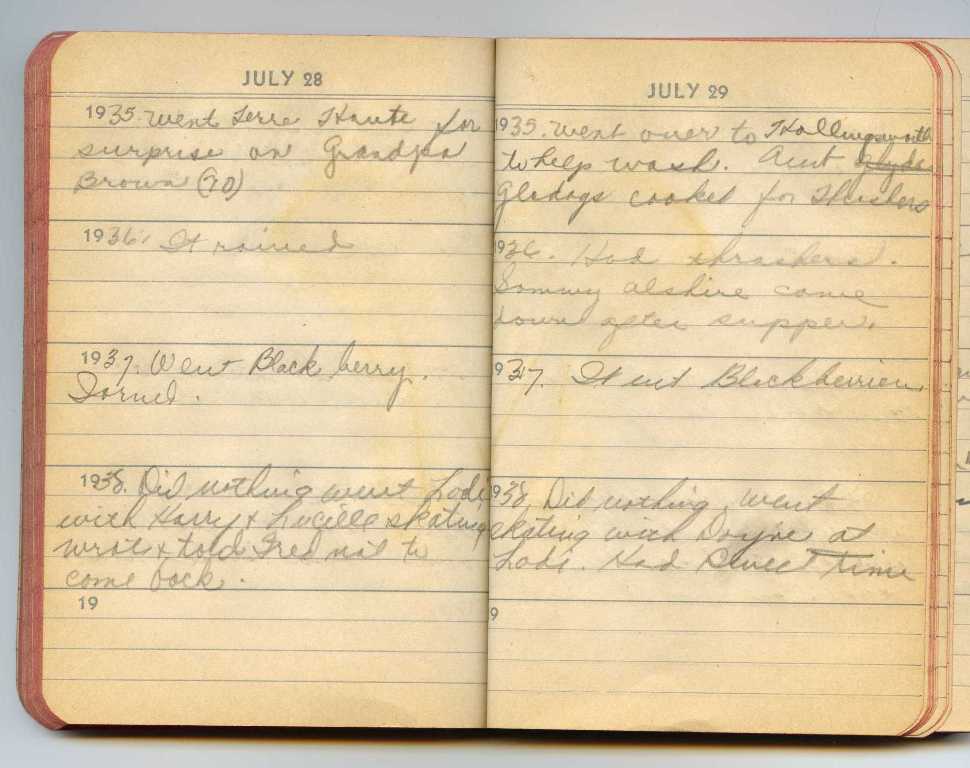 JULY 28
1935. Went Terre Haute for
surprise on Grandpa
Brown (70)
1936. It rained
1937. Went Black berry.
1938. Did nothing went Lodi
with Harry & Lucille skating
wrote & told Fred not to
come back.
19
JULY 29
1935. Went over to Hollingsworth
to help wash. Aunt
Gladays cooked for Thrashers
1936. Had thrashers.
Sammy alshire came
down after supper.
1937. Went Blackberrien.
1938. Did nothing, went
skating with Doyne at
Lodi. Had Sweet time
9